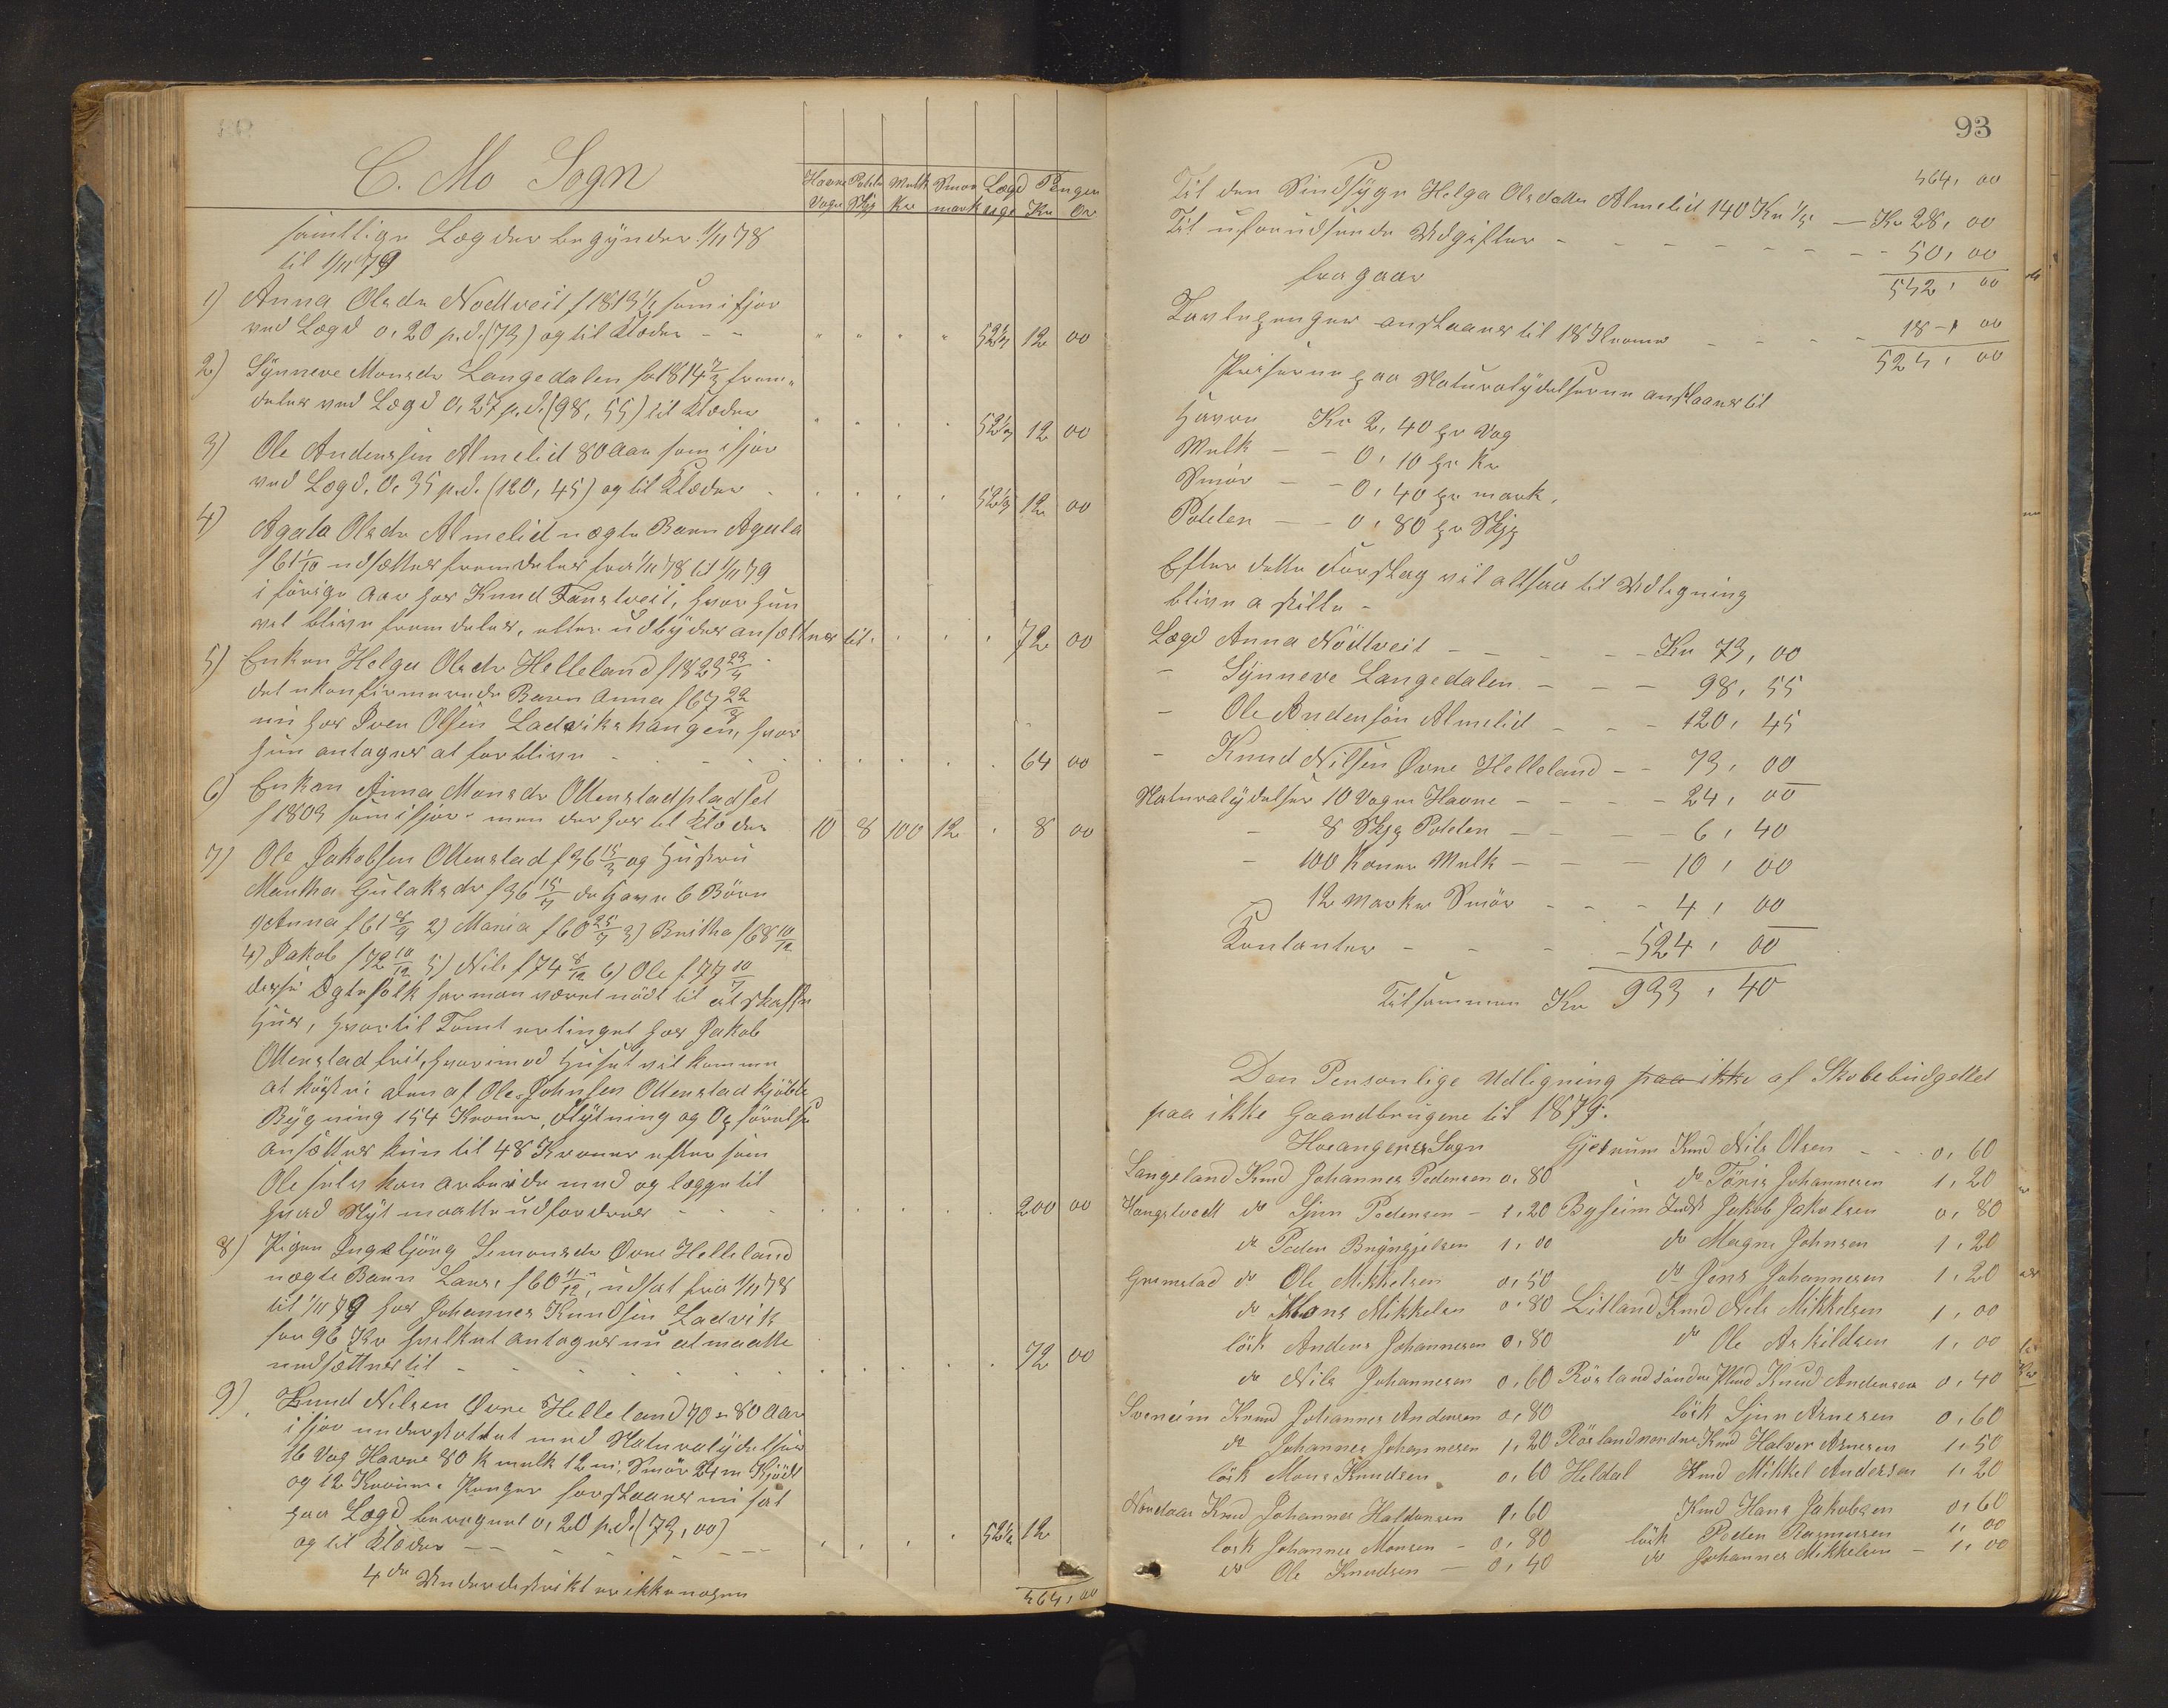 C. Mo Sogn
Havre Poteter Melk Smør Lægd Penger
Voger Skjp Kr mark uger Kr Ør
samtlige Lægder begynder 1/11 78
til 1/11 79
1) Anna Olsdr Nodtveit f 1813 1/2 som i fjor
ved Lægd 0,20 p.d. (73) og til Klæder - - " " " " 52 1/7 12 00
2) Synneve Monsdr Langedalen fø 1814 7/3 frem-
deles ved Lægd 0,27 p.d. (98,55) til Klæder 52 1/7 12 00
3) Ole Anderssen Almelid 80 Aar som i fjor
ved Lægd. 0.35 p.d. (120,45) og til Klæder 52 1/7 12 00
4) Agata Olsdr Almelid uægte Barn Agata
f 61 1/10 udsættes fremdeles fra 1/11 78 til 1/11 79
i forrige Aar hos Knud Tanstveit, hvor hun
vel blive fremdeles, eller udbydes ansættes til 72 00
5) Enken Helga Olsdr Helleland f 1823 23/4
det ukonfirmerede Barn Anna f 67 22/9
nu hos Iver Olsen Ladvikshaugen, hvor
hun antages at forblive 64 00
6) Enken Anna Monsdr Ottenstadpladset
f 1803 som i fjor - men derhos til Klæder 10 8 100 12 . 8 00
7) Ole Jakobsen Ottenstad f 36 15/3 og Hustru
Martha Gulaksdr f 36 15/7 de have 6 Børn
1) Anna f 61 8/9 2) Maria f 60 25/7 3) Britha f 68 10/12
4) Jakob f 72 10/12 5) Nils f 74 8/12 6) Ole f 77 10/7
disse Ægtefolk har man været nødt til at skaffe
Huus, hvortil Tomt er tinget hos Jakob
Ottenstad frit, hvorimod Huset vil komme
at koste: den af Ole Johnsen Ottenstad kjøbte
Bygning 154 Kroner, Flytning og Opførelse
ansættes kun til 48 Kroner eftersom
Ole selv kan arbeide med og lægge til
hvad Nyt maatte udfordres 200 00
8) Pigen Ingebjørg Simonsdr Øvre Helleland
uægte Barn Lars, f 60 11/12, udsat fra 1/11 78
til 1/11 79 hos Johannes Knudsen Ladvik
for 96 Kr hvilket antages nu at maatte
nedsættes til 72 00
9) Knud Nilsen Øvre Helleland 70 a 80 Aar
i fjor understøttet med Naturalydelser
16 Vog Havre 80 K melk 12 m. Smør 24 m Kjødt
og 12 Kroner i Penger forslaaes nu sat
paa Lægd beregnet 0,20 p.d. (73,00)
og til Klæder 52 1/7 12
4de Underdistrikt er ikke nogen
564,00
93
564, 00
Til den Sindsyge Helga Olsdatter Almelid 140 Kr 1/5 — Kr 28, 00
Til uforudseende Udgifter - - - - - - - 50, 00
542, 00
fragaar
Tavlepenger anslaaes til 18 Kroner - - - - 18 - 00
524, 00
Priserne paa Naturalydelserne anslaaes til
Havre Kr 2,40 pr Vog
Melk - - 0,10 pr Kr
Smør - - 0,40 pr mark.
Poteten - - 0,80 pr Skjp
Efter dette Forslag vil altsaa til Udligning
blive a stille -
Lægd Anna Nödtveit - - - - Kr 73,00
- Synneve Langedalen - - - 98,55
- Ole Andersøn Almelid - - - 120,45
- Knud Nilsen Øvre Helleland - - 73,00
Naturalydelser 10 Voger Havre - - - - 24,00
- 8 Skjp Poteten - - - - 6,40
- 100 Kaner Melk - - - 10,00
12 marker Smør - - - 4,00
Kontanter - - - 524,00
Tilsammen Kr 933,40
Den Personlige Udligning paa ikke af Skolebudgettet
paa ikke Gaardbrugene til 1879.
Hosangers Sogn Gjetrum Kmd Nils Olsen - - 0,60
Langeland Kmd Johannes Pedersen 0,80 do Tøris Johannesen 1,20
Hangstvedt do Sjur Pedersen - 1,20 Byseim Inds Jakob Jakobsen 0,80
do Peder Brynjelsen 1,00 do Magne Johnsen 1,20
Grimstad do Ole Mikkelsen 0,50 do Jens Johannesen 1,20
do Mons Mikkelsen 0,80 Litland Kmd Nils Mikkelsen 1,00
lösk Anders Johannesen 0,80 do Ole Askildsen 1,00
do Nils Johannesen 0,60 Røsland søndre Kmd Knud Andersen 0,40
Sveneim Kmd Johannes Andersen 0,80 lösk Sjur Arnesen 0,60
do Johannes Johannesen 1,20 Røsland nordre Kmd Halvor Arnesen 1,50
lösk Mons Knudsen 0,60 Heldal Kmd Mikkel Andersen 1,20
Nordaas Kmd Johannes Haldorsen 1,60 Kmd Hans Jakobsen 0,60
lösk Johannes Monsen - 0,80 lösk Peder Rasmusen 1,00
do Ole Knudsen - 0,40 do Johannes Mikkelsen - 1,00